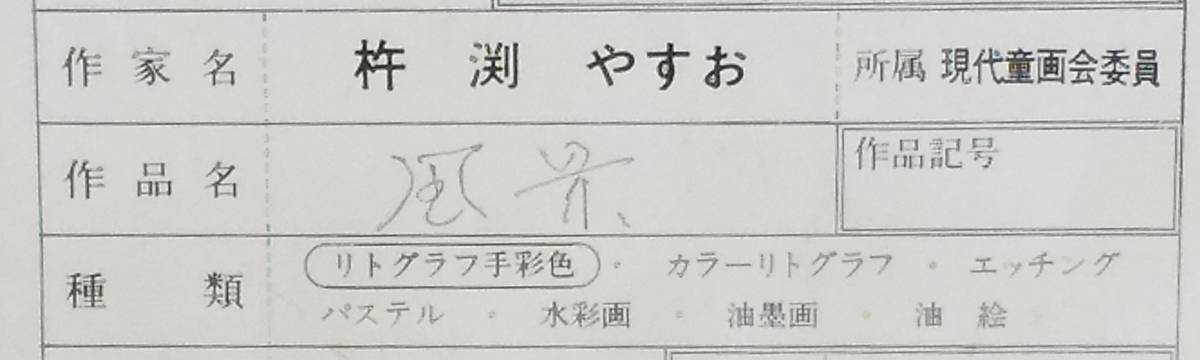 作家名 杵渕 やすお 所属 現代童画会委員
作品名 風景 作品記号
種類 リトグラフ手彩色 ・ カラーリトグラフ ・ エッチング
パステル ・ 水彩画 ・ 油墨画 ・ 油絵